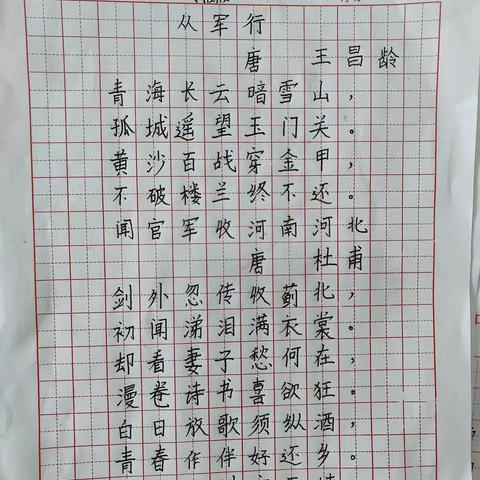 从军行
唐 王昌龄
青海长云暗雪山，
孤城遥望玉门关。
黄沙百战穿金甲，
不破楼兰终不还。
闻官军收河南河北
唐 杜甫
剑外忽传收蓟北，
初闻涕泪满衣裳。
却看妻子愁何在，
漫卷诗书喜欲狂。
白日放歌须纵酒，
青春作伴好还乡。